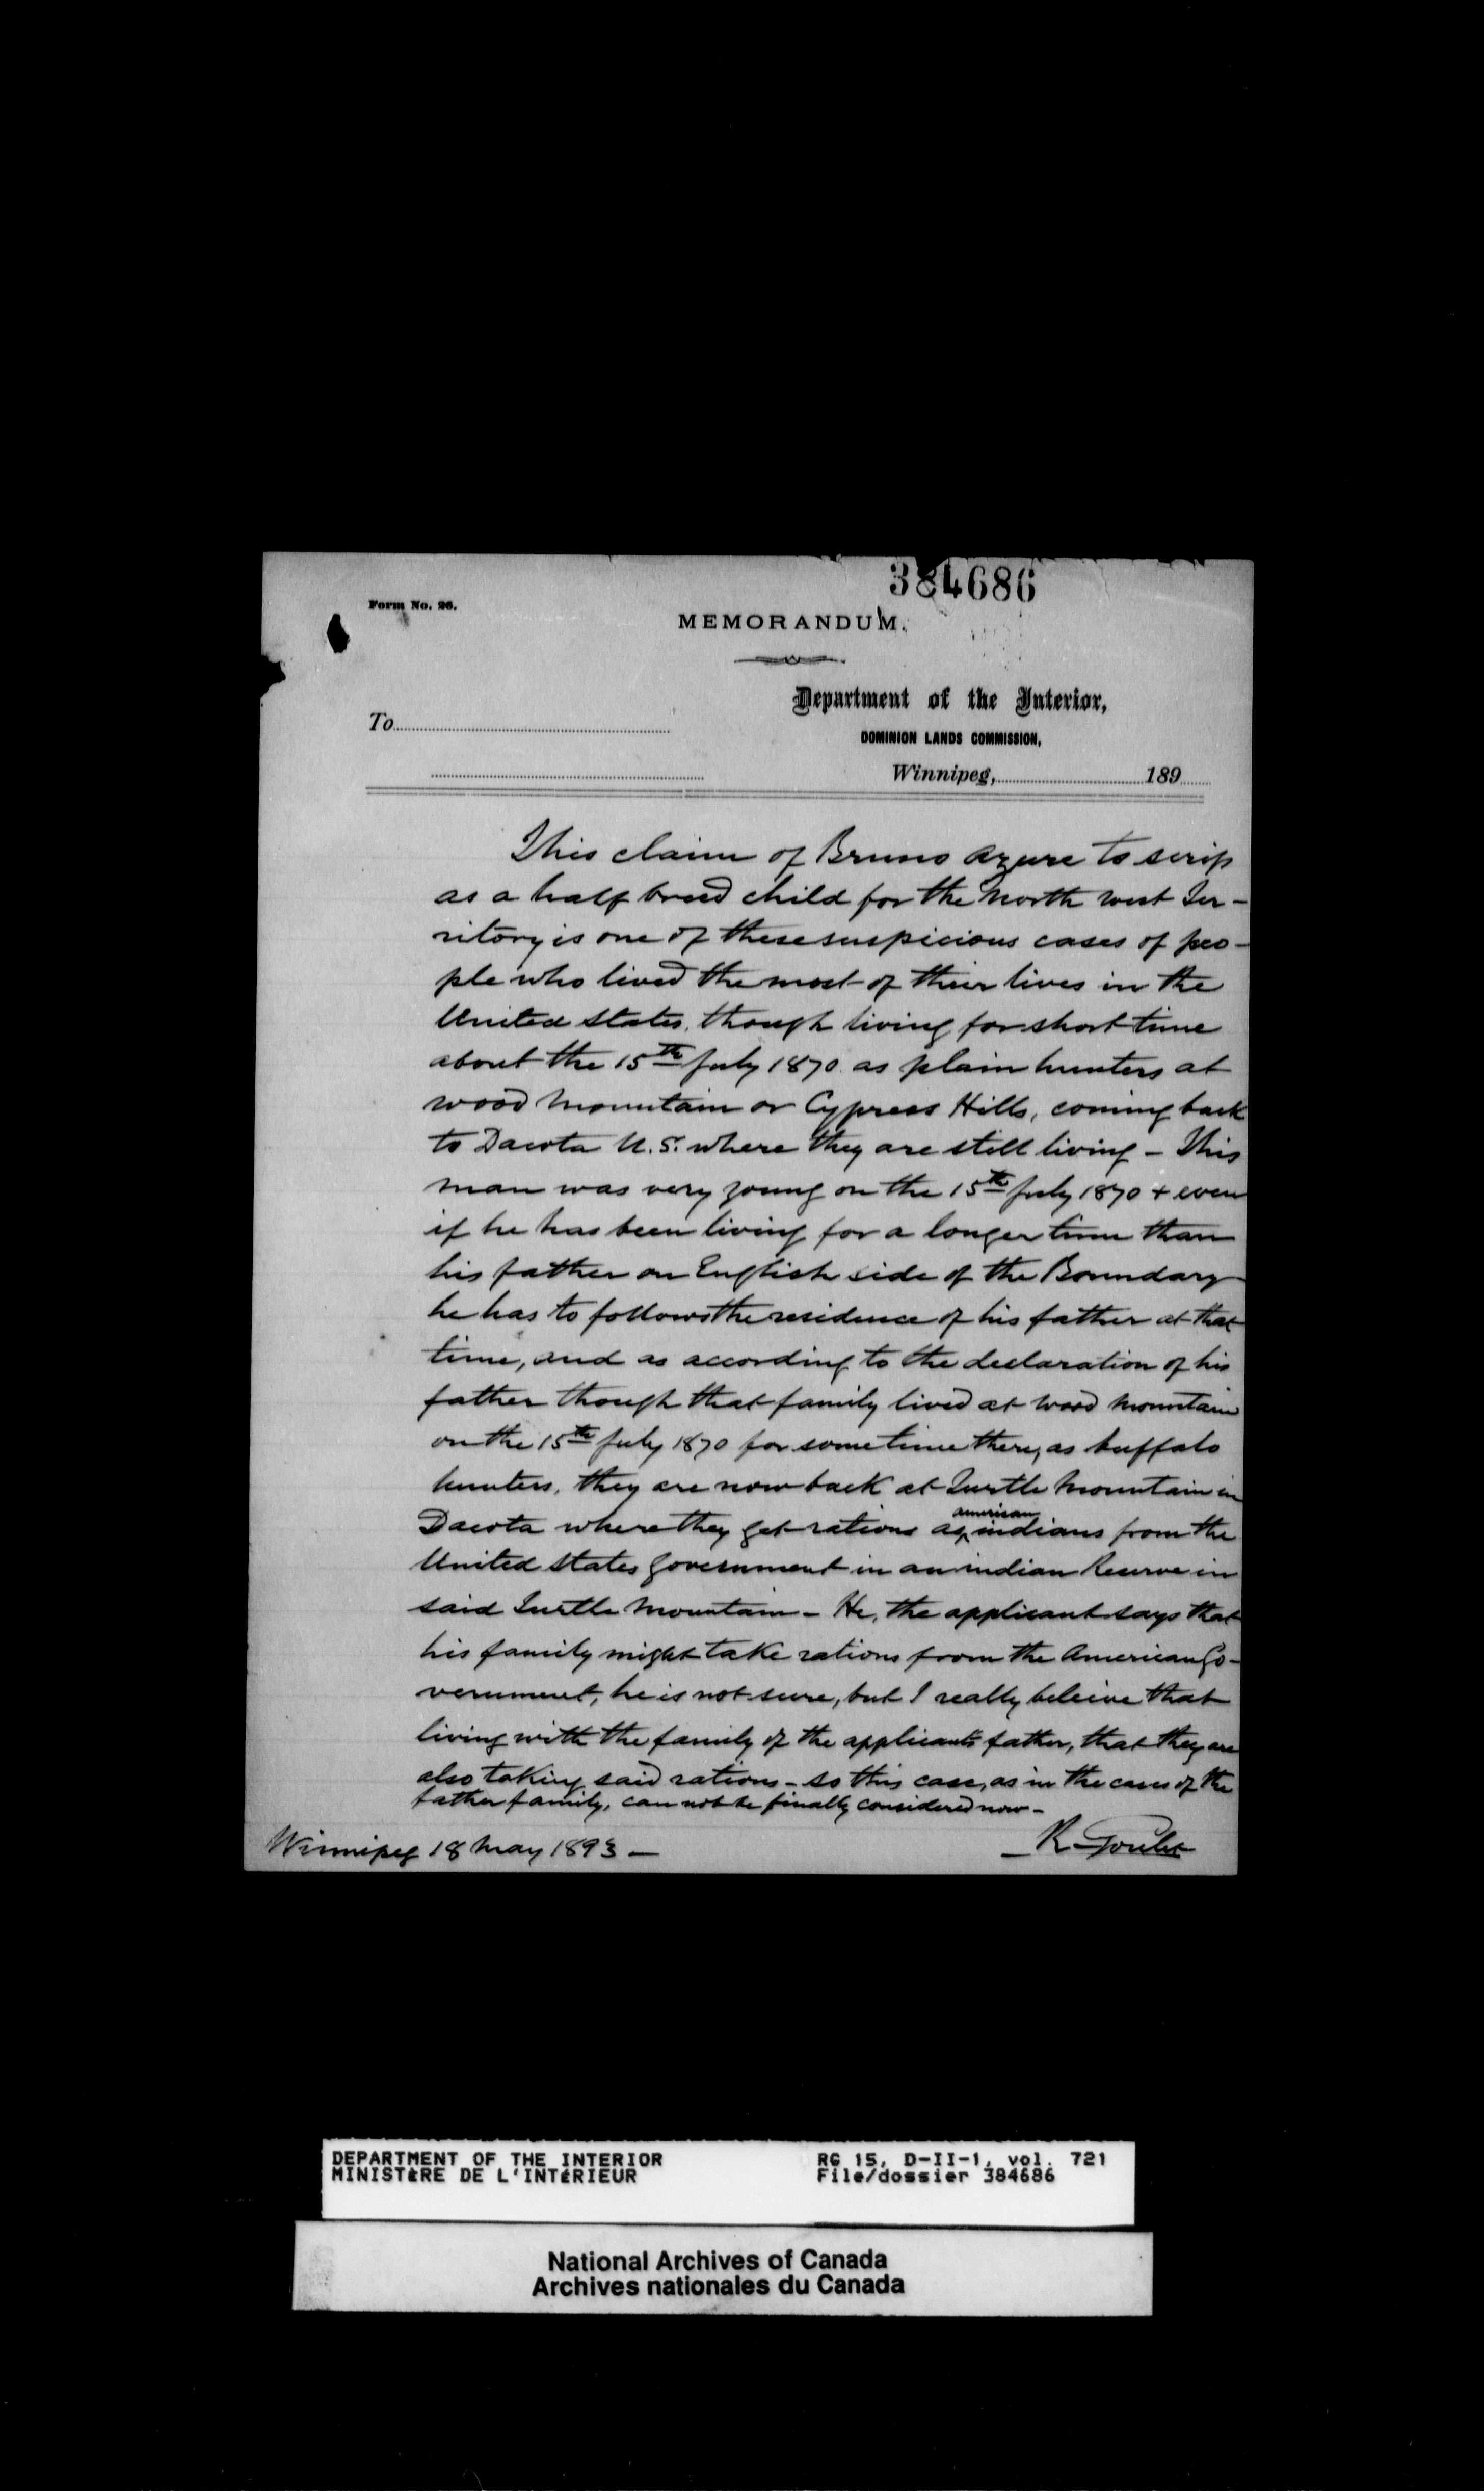 384686
Form No. 26.
MEMORANDUM.
Department of the Interior,
To
DOMINION LANDS COMMISSION,
Winnipeg, 189
This claim of Bruno Azure to scrip
as a half breed child for the North west Ter-
ritory is one of these suspicious cases of peo-
ple who lived the most of their lives in the
United States, though living for short time
about the 15th July 1870. as plain hunters at
wood Mountain or Cypress Hills, coming back
to Dacota U.S. where they are still living - This
man was very young on the 15th July 1870 + even
if he has been living for a longer time than
his father on English side of the Boundary
he has to follows the residence of his father at that
time, and as according to the declaration of his
father though that family lived at Wood Mountain
on the 15th July 1870 for sometime there, as buffalo
hunters, they are now back at Turtle Mountain in
american
Dacota where they get rations as indians from the
United States Government in an indian Reserve in
said Turtle Mountain - He, the applicant says that
his family might take rations from the American Go-
vernment, he is not sure, but I really beleive that
living with the family of the applicants father, that they are
also taking said rations - so this case, as in the cases of the
father family, can not be finally considered now -
R. Goulet
Winnipeg 18 May 1893 -
DEPARTMENT OF THE INTERIOR RG 15, D-II-1, vol. 721
MINISTÈRE DE L'INTÉRIEUR File/dossier 384686
National Archives of Canada
Archives nationales du Canada